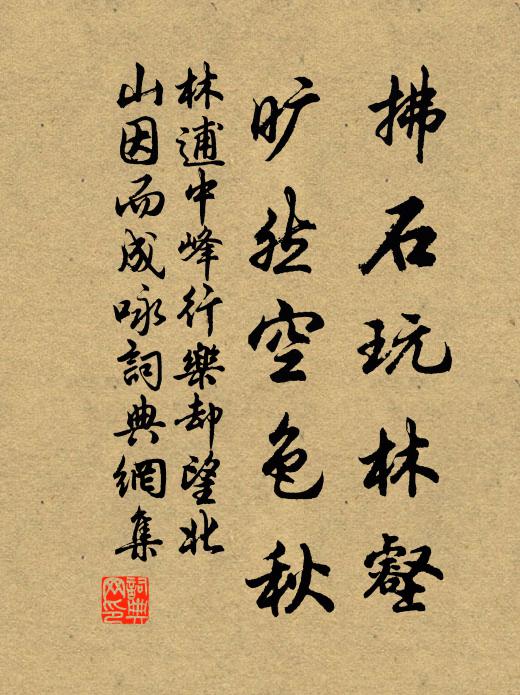 拂石玩林壑
旷然空色秋
林逋中峰行樂却望北
山因而成咏詞典網集
詞典
网印